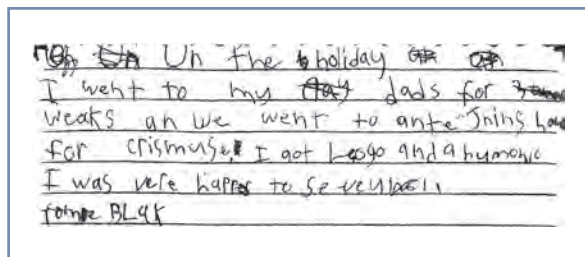 Un the holiday
I went to my dads for
weaks an we went to ante Jnins
for crismuse I got Leogo and a humonic
I was vere happe to se
BLak